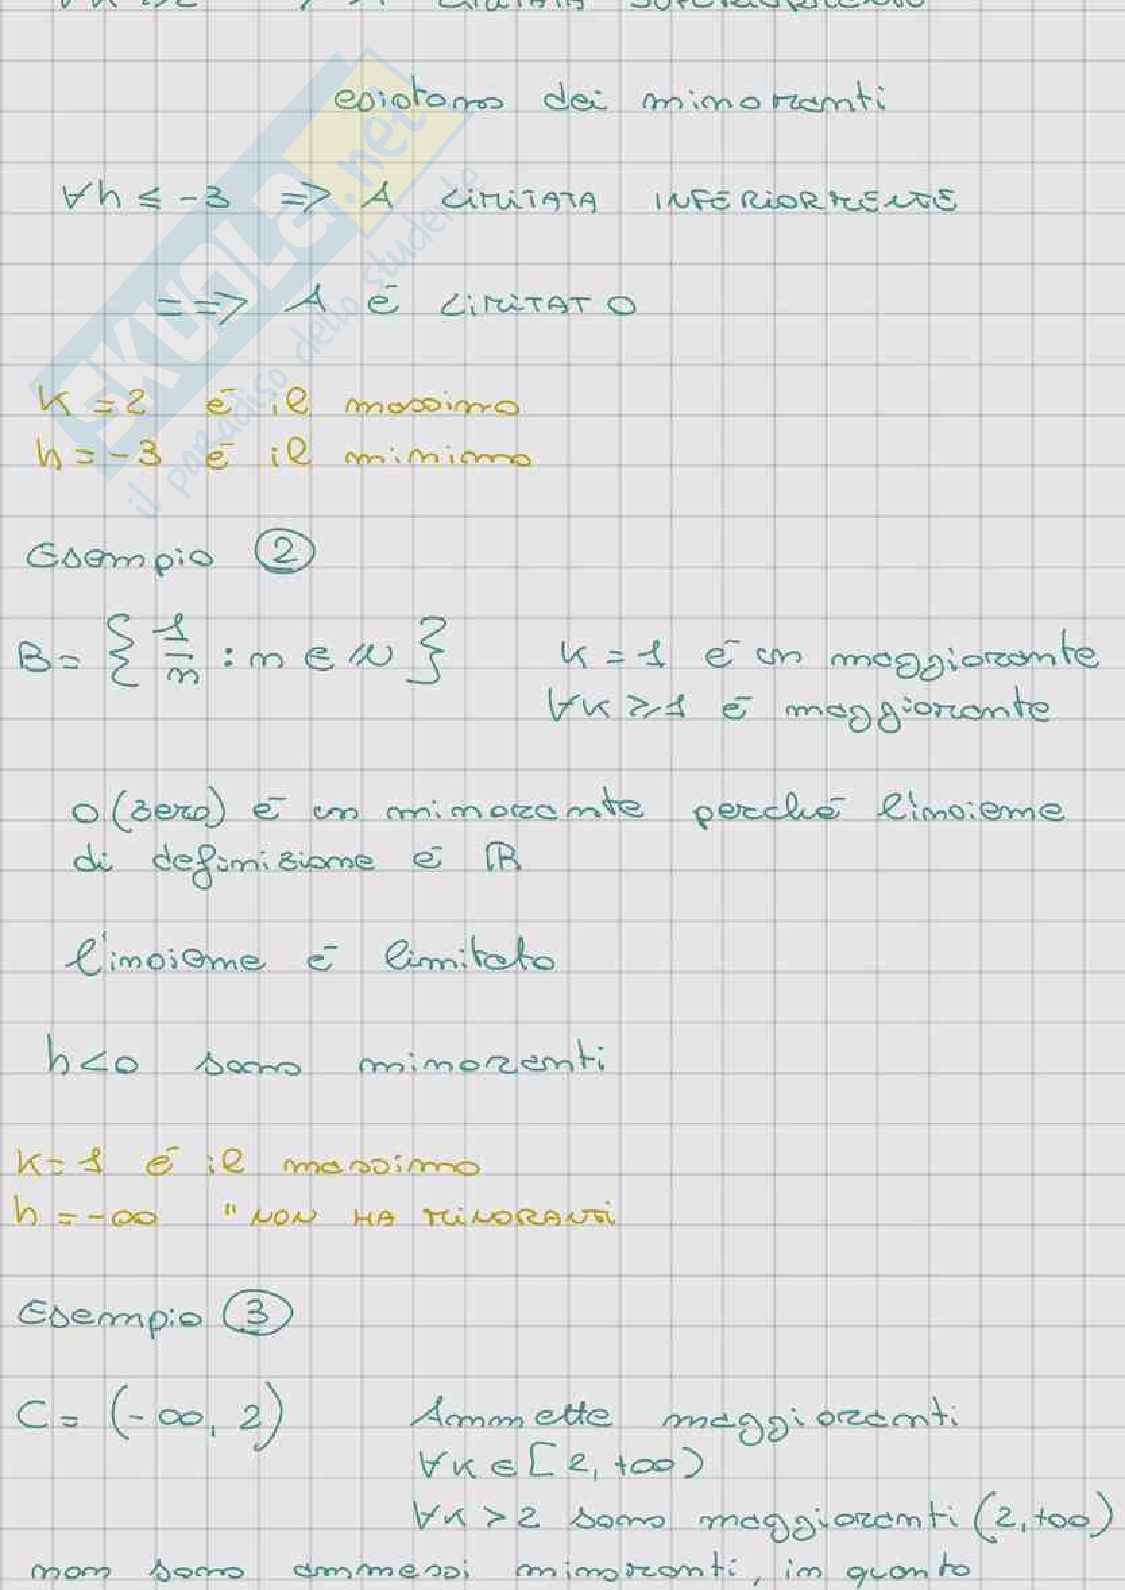 esistono dei minoranti
∀h ≤ -3 => A LIMITATA INFERIORMENTE
==> A é LIMITATO
K = 2 é il massimo
h = -3 é il minimo
Esempio ②
B = { 1/n : n ∈ N } K = 1 é un maggiorante
∀K ≥ 1 é maggiorante
0 (zero) é un minorante perché l'insieme
di definizione é R
l'insieme é limitato
h < 0 sono minoranti
K = 1 é il massimo
h = -∞ " NON HA MINORANTI
Esempio ③
C = (-∞, 2) Ammette maggioranti
∀K ∈ [2, +∞)
∀K > 2 sono maggioranti (2, +∞)
non sono ammessi minoranti, in quanto
SKUOLA.net
il paradiso dello studente